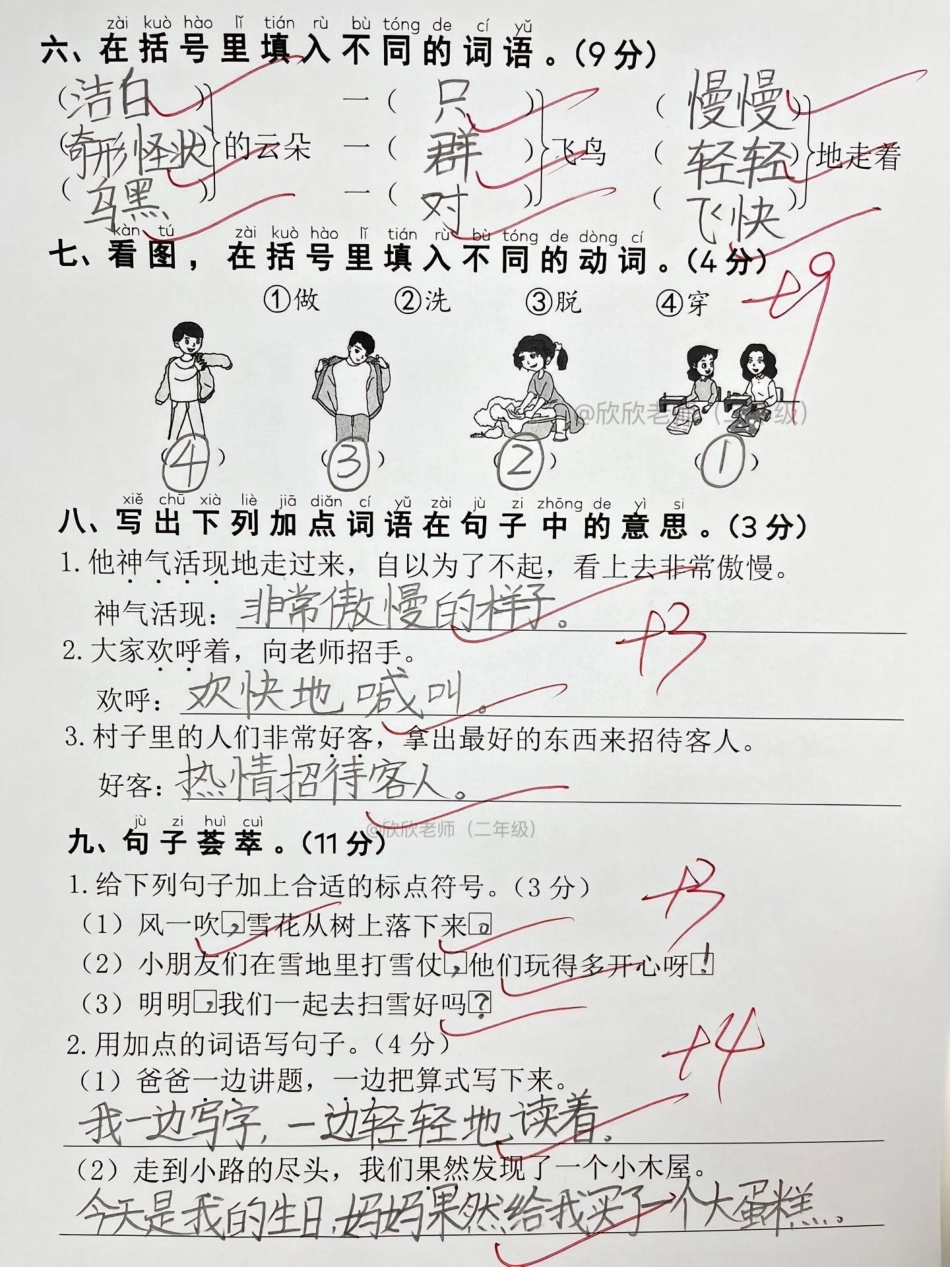 zài kuò hào lǐ tián rù bù tóng de cí yǔ
六、在括号里填入不同的词语。（9分）
（洁白） 一（只） （慢慢）
（奇形怪状）的云朵 一（群）飞鸟 （轻轻）地走着
（乌黑） 一（对） （飞快）
kàn tú zài kuò hào lǐ tián rù bù tóng de dòng cí
七、看图，在括号里填入不同的动词。（4分）
+9
①做 ②洗 ③脱 ④穿
@欣欣老师（二年级）
（④） （③） （②） （①）
xiě chū xià liè jiā diǎn cí yǔ zài jù zi zhōng de yì si
八、写出下列加点词语在句子中的意思。（3分）
1. 他神气活现地走过来，自以为了不起，看上去非常傲慢。
神气活现：非常傲慢的样子。
+3
2. 大家欢呼着，向老师招手。
欢呼：欢快地喊叫。
3. 村子里的人们非常好客，拿出最好的东西来招待客人。
好客：热情招待客人。
@欣欣老师（二年级）
jù zi huì cuì
九、句子荟萃。（11分）
1. 给下列句子加上合适的标点符号。（3分）
+3
（1）风一吹，雪花从树上落下来。
（2）小朋友们在雪地里打雪仗，他们玩得多开心呀！
（3）明明，我们一起去扫雪好吗？
2. 用加点的词语写句子。（4分）
+4
（1）爸爸一边讲题，一边把算式写下来。
我一边写字，一边轻轻地读着。
（2）走到小路的尽头，我们果然发现了一个小木屋。
今天是我的生日，妈妈果然给我买了一个大蛋糕。